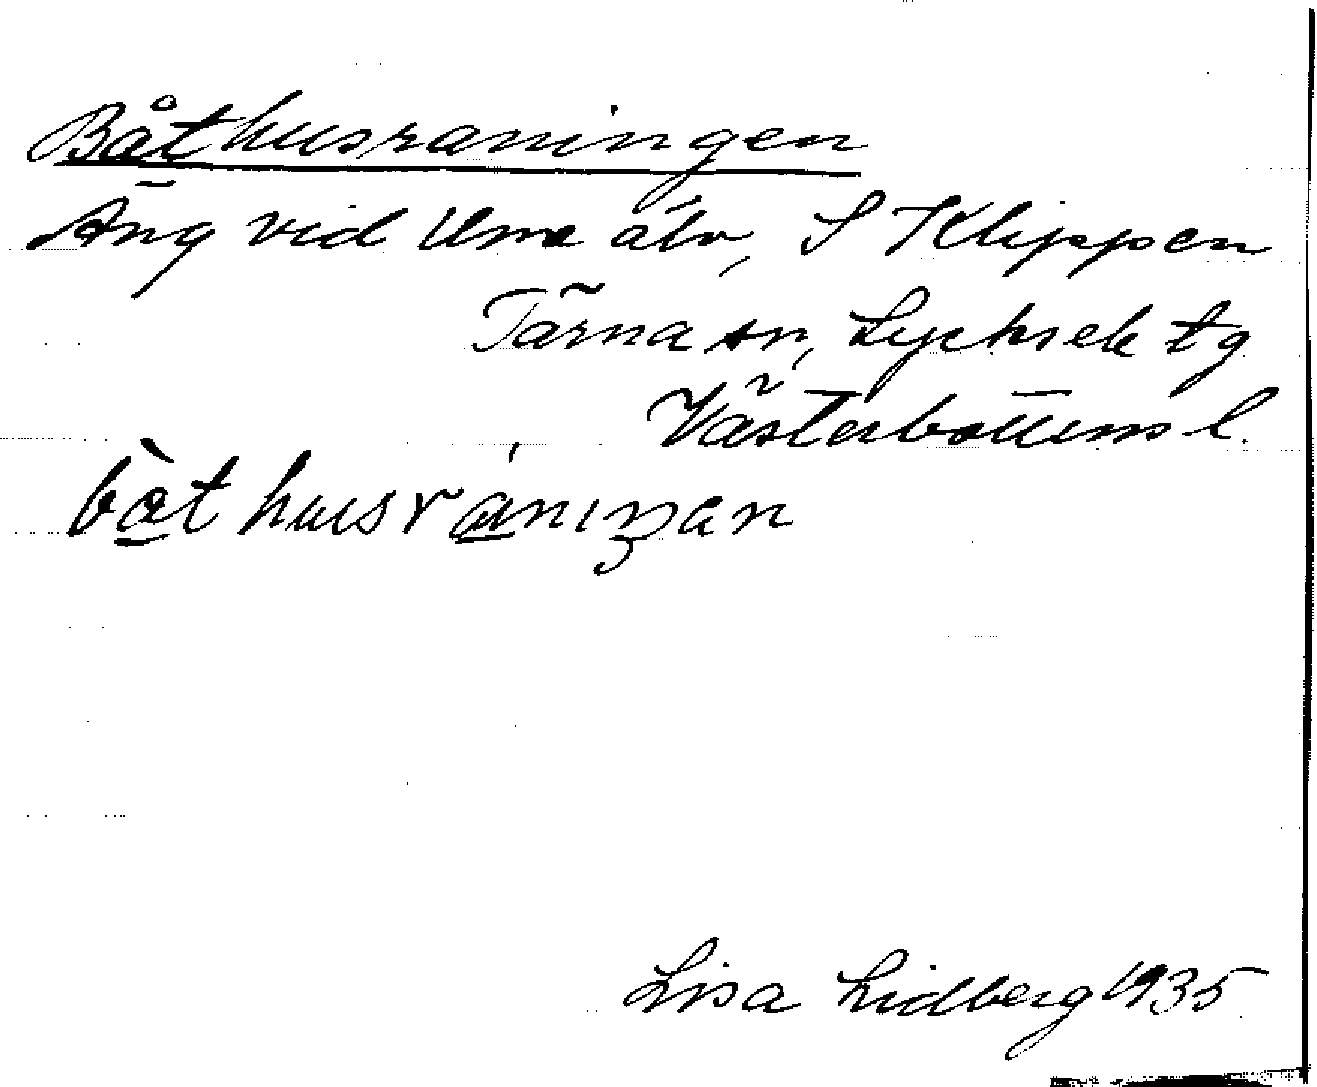 Båthusraningen
Äng vid Ume älv, S Klippen
Tärna sn, Lycksele tg
Västerbottens l.
bå̀t husrániŋan
Lisa Lidberg 1935